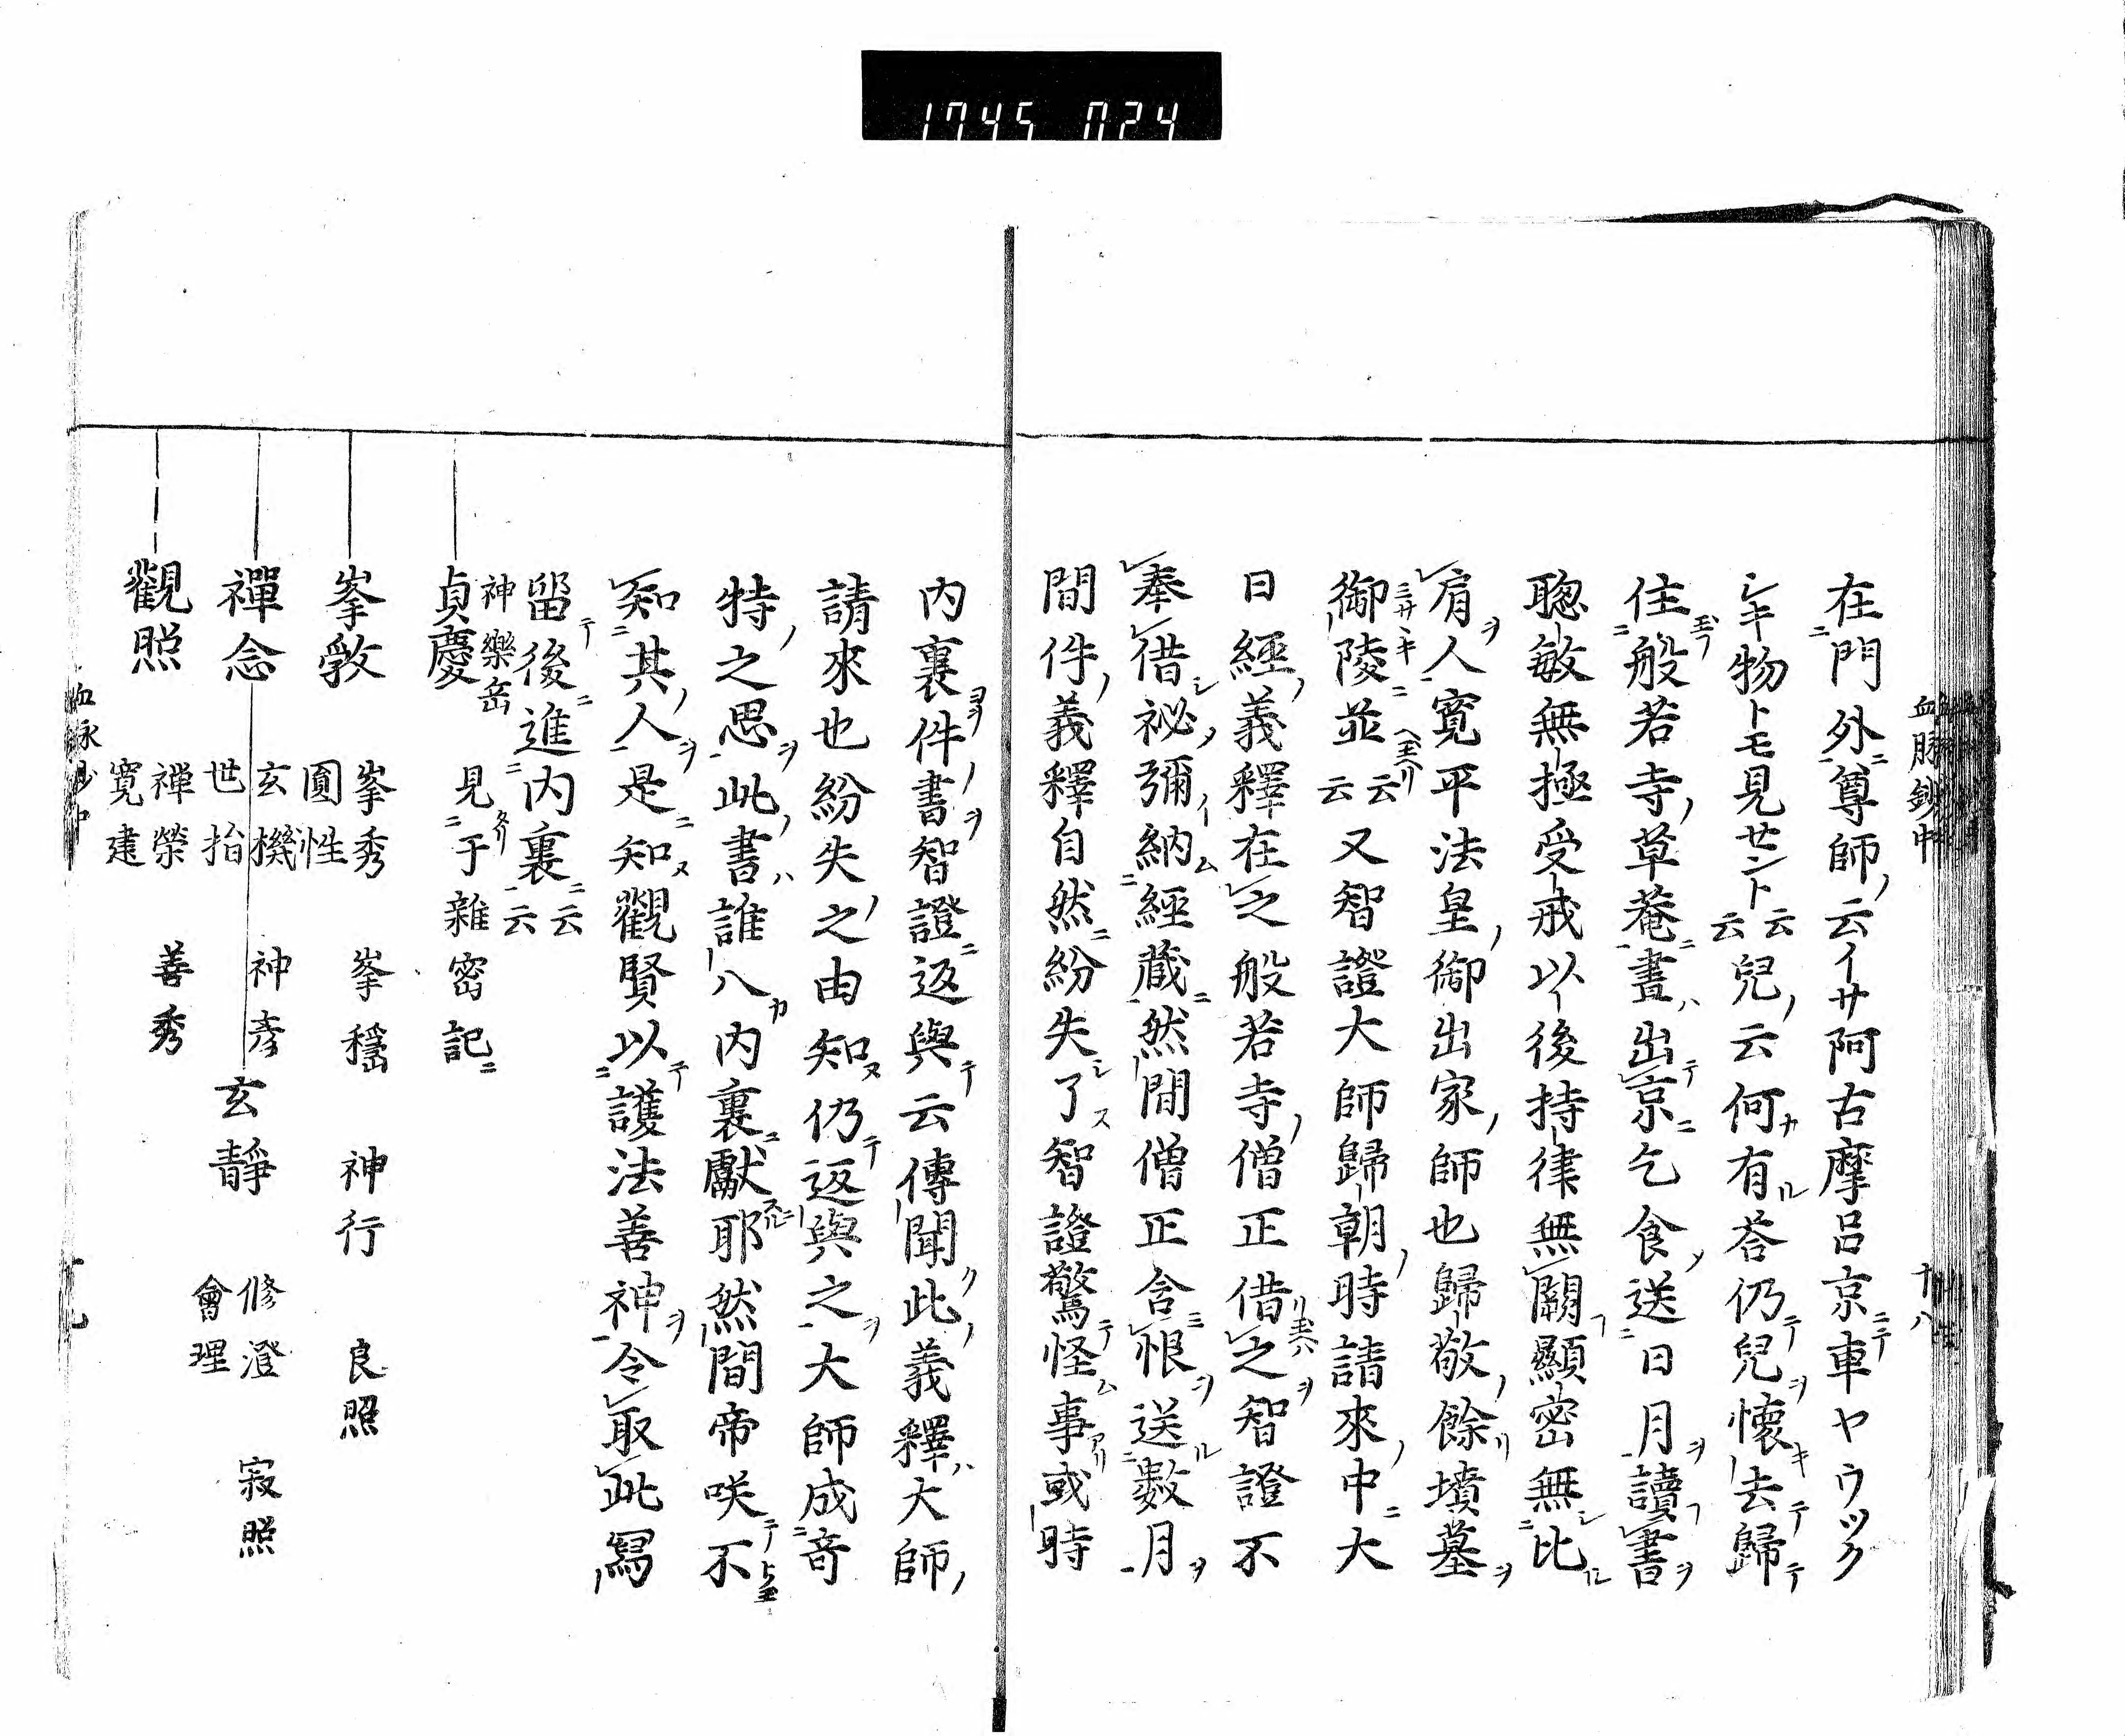 1745 024
血脉鈔中 十八
在門外尊師云イサ阿古摩呂京車ヤウツク
シキ物トモ見セント云云兒云何有荅仍兒懷去歸
住般若寺草菴晝出京乞食送日月讀書
聰敏無極受戒以後持律無闕顯密無比
肩人寛平法皇御出家師也歸敬餘墳墓
御陵並云云又智證大師歸朝時請來中大
日經義釋在之般若寺僧正借之智證不
奉借祕彌納經藏然間僧正含恨送數月
間件義釋自然紛失了智證驚怪事或時
内裏件書智證返與云傳聞此義釋大師
請來也紛失之由知仍返與之大師成奇
特之思此書誰人内裏獻耶然間帝咲不
知其人是知觀賢以護法善神令取此寫
留後進内裏云云
神樂岳
貞慶 見于雜密記
峯斅 峯秀 圓性 峯穩 神行 良照
禪念 玄機 世抬 神彦 玄靜 修澄 會理 寂照
觀照 禪榮 寛建 善秀